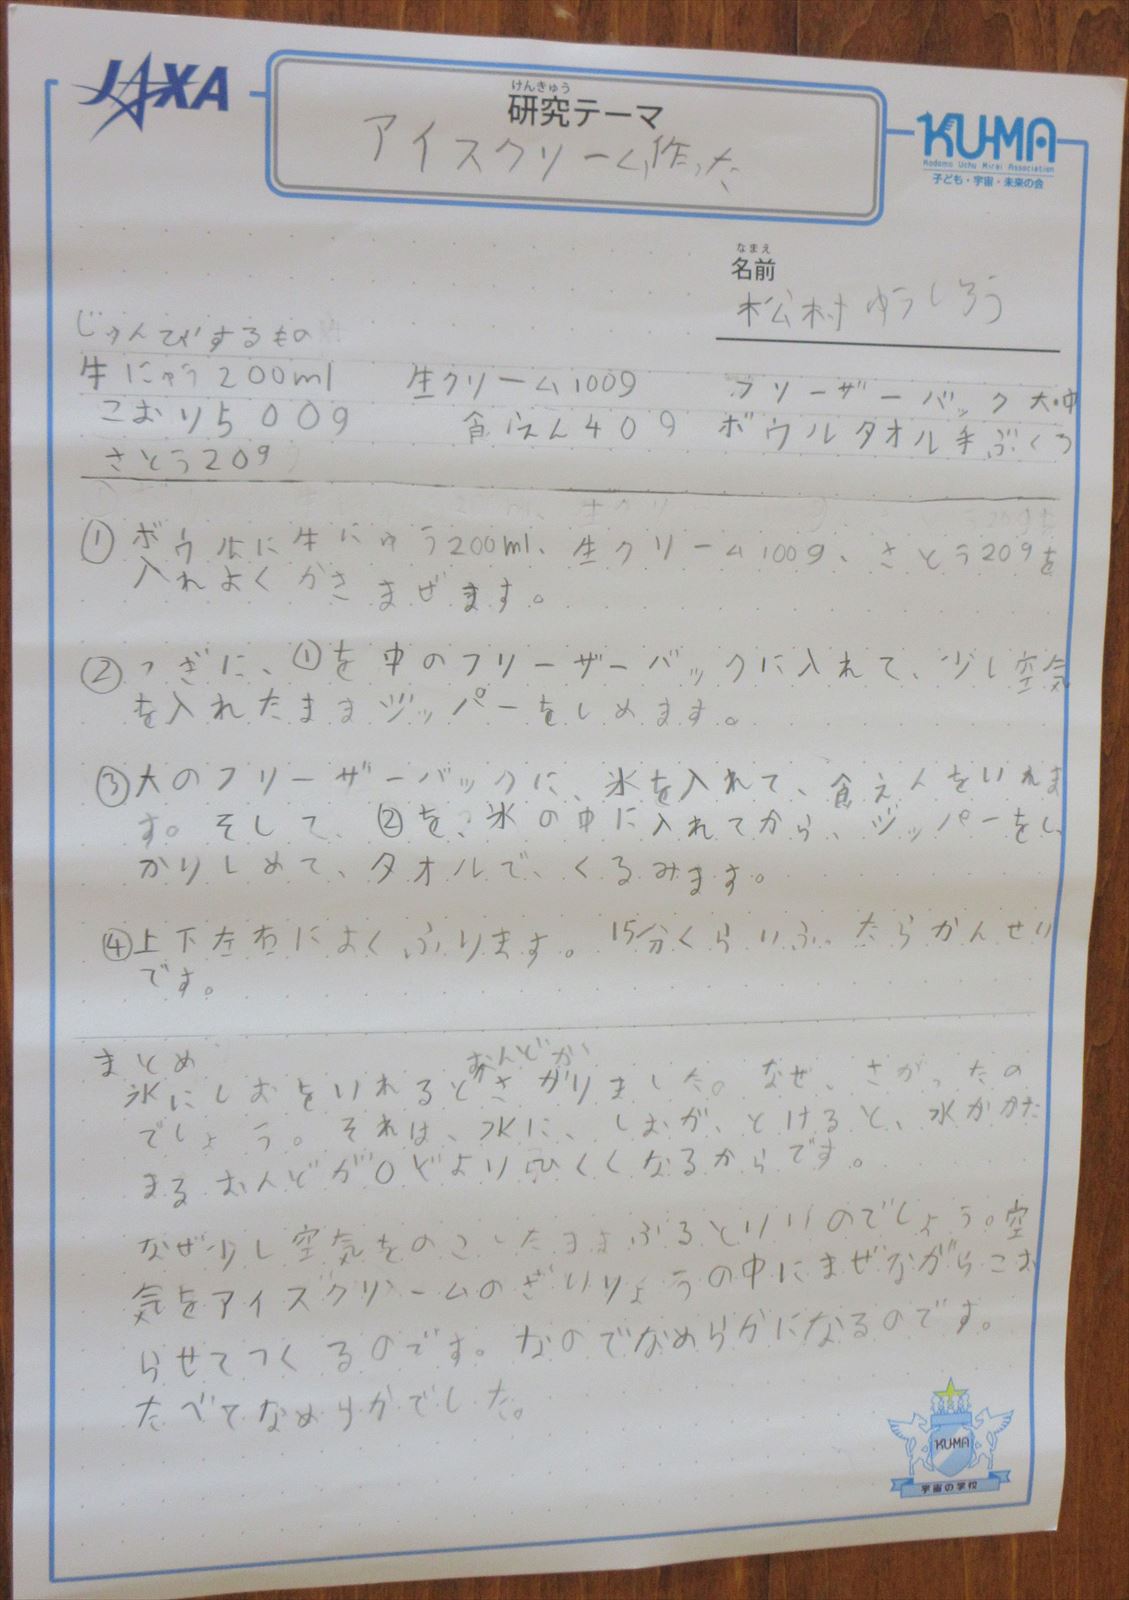 JAXA
けんきゅう
研究テーマ
アイスクリーム作った
KU-MA
Kodomo Uchu Mirai Association
子ども・宇宙・未来の会
なまえ
名前
松村ゆうしろう
じゅんびするもの
牛にゅう200ml 生クリーム100g フリーザーバック大・中
こおり500g 食えん40g ボウルタオル手ぶくろ
さとう20g
① ボウルに牛にゅう200ml、生クリーム100g、さとう20gを
入れよくかきまぜます。
② つぎに、①を中のフリーザーバックに入れて、少し空気
を入れたままジッパーをしめます。
③ 大のフリーザーバックに、氷を入れて、食えんをいれま
す。そして、②を、氷の中に入れてから、ジッパーをしっ
かりしめて、タオルで、くるみます。
④ 上下左右によくふります。15分くらいふったらかんせい
です。
まとめ
おんどが
氷にしおをいれるとさがりました。なぜ、さがったの
でしょう。それは、水に、しおが、とけると、水がかた
まるおんどが0どよりひくくなるからです。
なぜ少し空気をのこしたままふるといいのでしょう。空
気をアイスクリームのざいりょうの中にまぜながらこお
らせてつくるのです。なのでなめらかになるのです。
たべてなめらかでした。
KU-MA
宇宙の学校